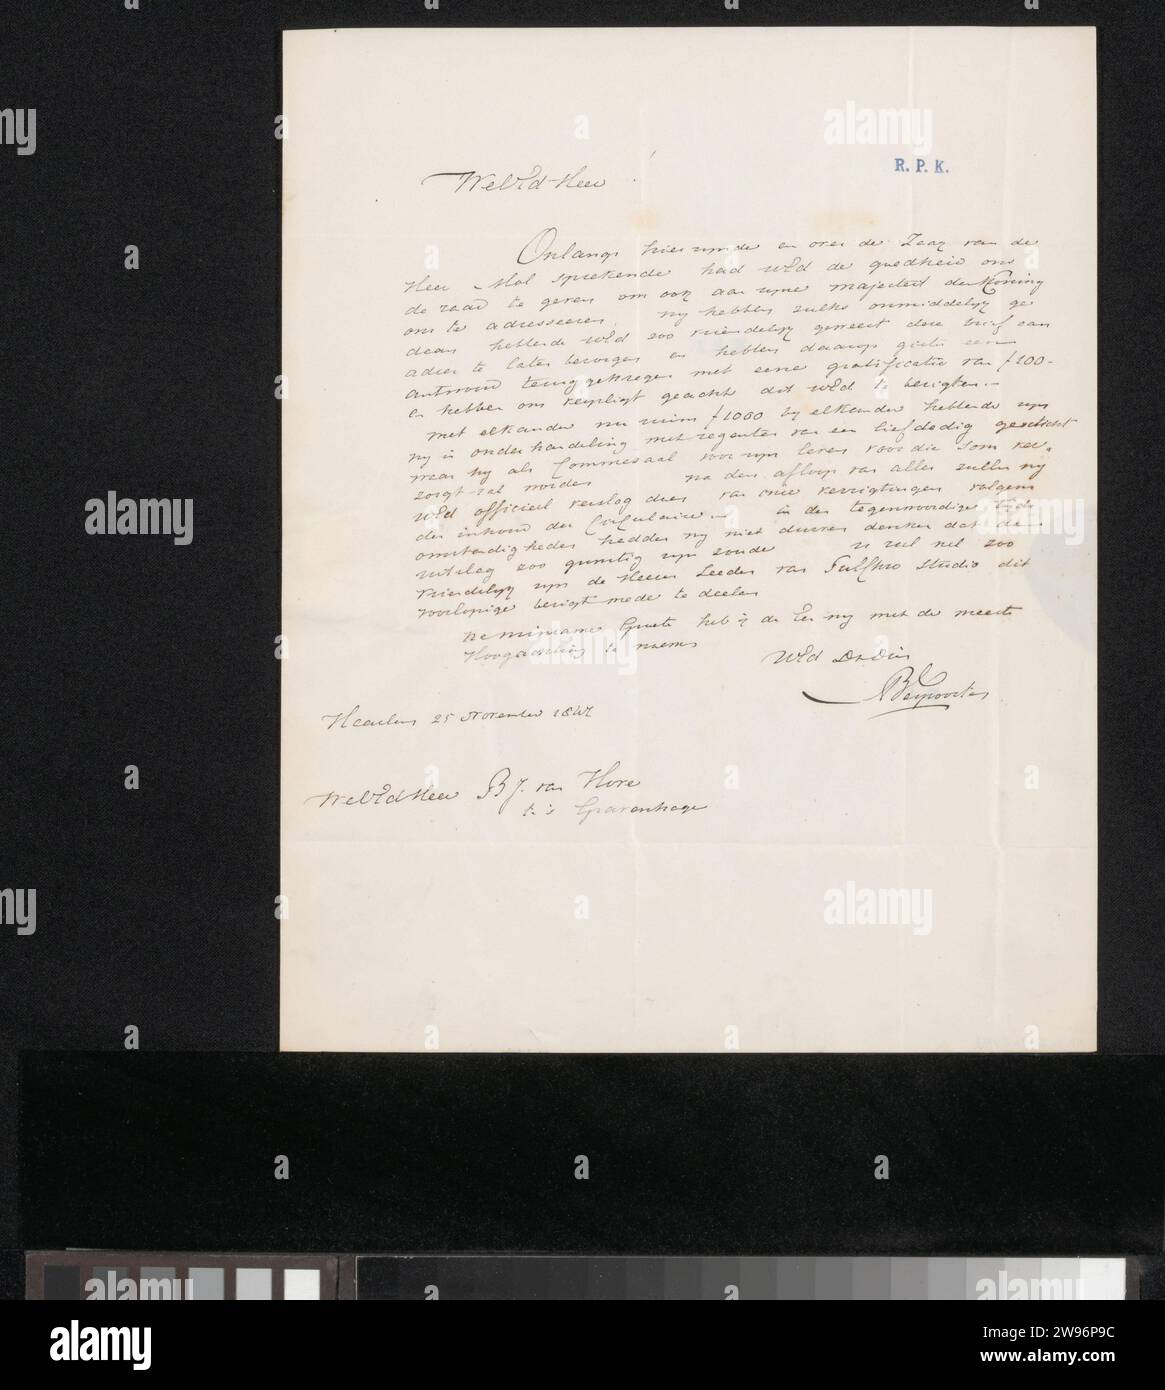 R. P. K.
WelEd Heer !
Onlangs hier zijnde en over de Zaak van de
Heer Mol sprekende had WEd de goedheid ons
de raad te geven om ook aan zijne majesteit den Koning
ons te adresseeren. Wij hebben zulks onmiddelijk ge
daan hebbende WEd zoo vriendelijk geweest deze brief aan
adres te laten bezorgen en hebben daarop gister een
antwoord teruggekregen met eene gratificatie van ƒ100-
en hebben ons verpligt geacht dit WEd te berigten.-
Met elkander nu ruim ƒ1000 bij elkander hebbende zijn
wij in onderhandeling met regenten van een liefdedig gesticht
waar hij als Commensaal voor zijn leven voor die som ver-
zorgt zal worden na den afloop van alles zullen wij
WEd officieel verslag doen van onze verrigtingen volgens
den inhoud der Circulaire.- in den tegenwoordige tijds
omstandigheden hadden wij niet durven denken dat de
uitslag zoo gunstig zijn zoude U zal wel zoo
vriendelijk zijn de Heeren Leden van Pulchro Studio dit
voorlopige berigt mede te deelen
Na minzame Groete heb ik de Eer mij met de meeste
Hoogachting te noemen
WEd DwDien
Haarlem 25 November 1847
WelEdHeer B J. van Hove
te 's Gravenhage
alamy
Image ID: 2W96P9C
www.alamy.com